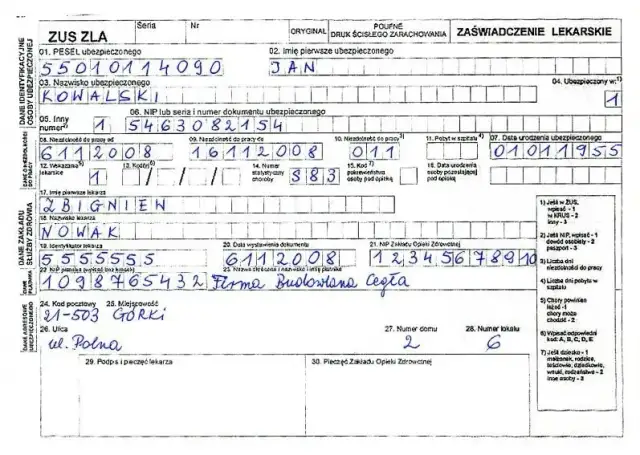 ZUS ZLA
Seria Nr
ORYGINAŁ
POUFNE
DRUK ŚCISŁEGO ZARACHOWANIA
ZAŚWIADCZENIE LEKARSKIE
DANE IDENTYFIKACYJNE OSOBY UBEZPIECZONEJ
01. PESEL ubezpieczonego 02. Imię pierwsze ubezpieczonego
55010114090 JAN
03. Nazwisko ubezpieczonego 04. Ubezpieczony w:1)
KOWALSKI 1
05. Inny numer2) 06. NIP lub seria i numer dokumentu ubezpieczonego
1 5463082154
08. Niezdolność do pracy od 09. Niezdolność do pracy do 10. Niezdolność do pracy3) 11. Pobyt w szpitalu4) 07. Data urodzenia ubezpieczonego
6112008 16112008 011 01011955
12. Wskazania5) lekarskie 13. Kod(y)6) 14. Numer statystyczny choroby 15. Kod7) pokrewieństwa osoby pod opieką 16. Data urodzenia osoby pozostającej pod opieką
1 / / / S83
17. Imię pierwsze lekarza
ZBIGNIEW
DANE ZAKŁADU SŁUŻBY ZDROWIA
18. Nazwisko lekarza
NOWAK
19. Identyfikator lekarza 20. Data wystawienia dokumentu 21. NIP Zakładu Opieki Zdrowotnej
5555555 6112008 12345678910
22. NIP płatnika (wpisać bez kresek)
1098765432 Firma Budowlana Cegła
DANE ADRESOWE UBEZPIECZONEGO
24. Kod pocztowy 25. Miejscowość
21-503 GÓRKI
26. Ulica 27. Numer domu 28. Numer lokalu
ul. Polna 2 6
29. Podpis i pieczęć lekarza 30. Pieczęć Zakładu Opieki Zdrowotnej
1) Jeśli w ZUS,
wpisać - 1
w KRUS - 2
Inny - 3
2) Jeśli NIP, wpisać - 1
dowód osobisty - 2
paszport - 3
3) Liczba dni
niezdolności do pracy
4) Liczba dni pobytu w
szpitalu
5) Chory powinien
leżeć -1
chory może
chodzić - 2
6) Wpisać odpowiedni
kod: A, B, C, D, E
7) Jeśli dziecko - 1
małżonek, rodzice,
teściowie, dziadkowie,
wnuki, rodzeństwo - 2
inne osoby - 3